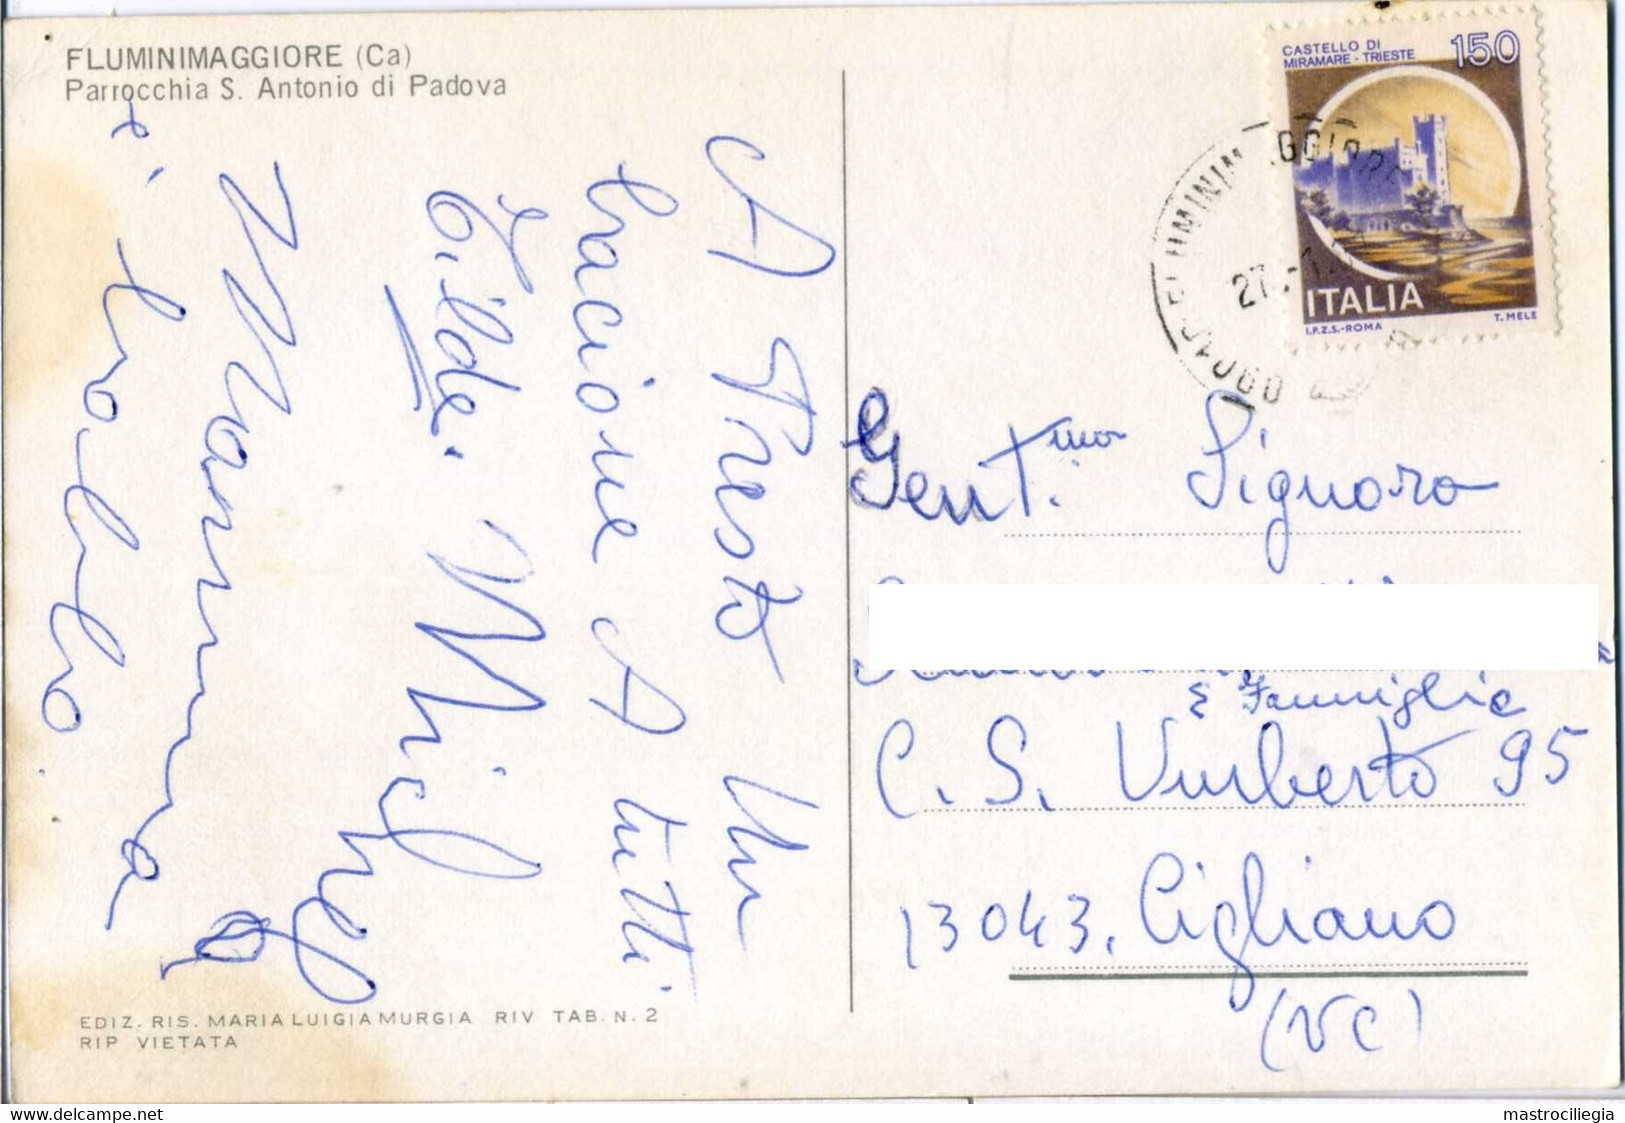 FLUMINIMAGGIORE (Ca)
Parrocchia S. Antonio di Padova
A Presto Un
bacione A tutti
Tilde. Michel
Mamma
e
EDIZ. RIS. MARIA LUIGIA MURGIA RIV TAB. N. 2
RIP VIETATA
CASTELLO DI
MIRAMARE - TRIESTE
150
ITALIA
I.P.Z.S.-ROMA
T. MELE
FLUMINIMAGGIORE
27.-1.
Gent.ma Signora
& Famiglia
C. S. Umberto 95
13043. Cigliano
(VC)
delcampe.net
mastrociliegia